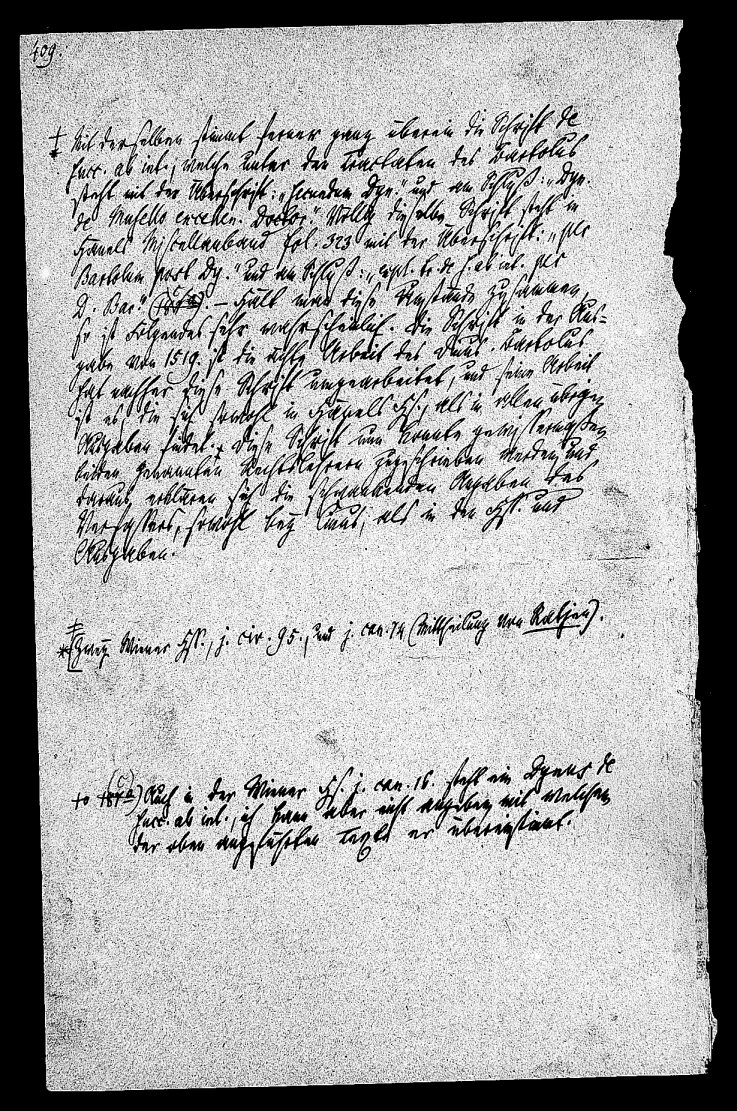 409.
Mit derselben stimmt ferner ganz überein die Schrift de
succ. ab int., welche unter den Tractaten des Bartolus
steht mit der Überschrift: „Secundum Dyn." und am Schluß: „Dyn.
de Muxello excellen. Doctor." Völlig dieselbe Schrift steht in
Hänels Miscellanband fol. 323 mit der Überschrift: „
Bartolum post Dy." und am Schluß: „expl. tr. de s. ab int.
D. Bar." – Hält man diese Umstände zusammen,
so ist Folgendes sehr wahrscheinlich. Die Schrift in der Aus-
gabe von 1519 ist die ächte Arbeit des Dinus. Bartolus
hat nachher diese Schrift umgearbeitet, und seine Arbeit
ist es, die sich sowohl in Hänels Hs., als in allen übrigen
Ausgaben findet. Diese Schrift nun konnte gewissermaßen
beiden genannten Rechtslehrern zugeschrieben werden, und
daraus erklären sich die schwankenden Angaben des
Verfassers, sowohl bey , als in den Hss. und
Ausgaben.
(Zwey Wiener Hss., j. civ. 95., und j. can. 74 (Mittheilung von Ratjen).
Auch in der Wiener Hs. j. can. 16. steht ein Dynus de
succ. ab int., ich kann aber nicht angeben mit welchem
der oben angeführten Texte er übereinstimt.